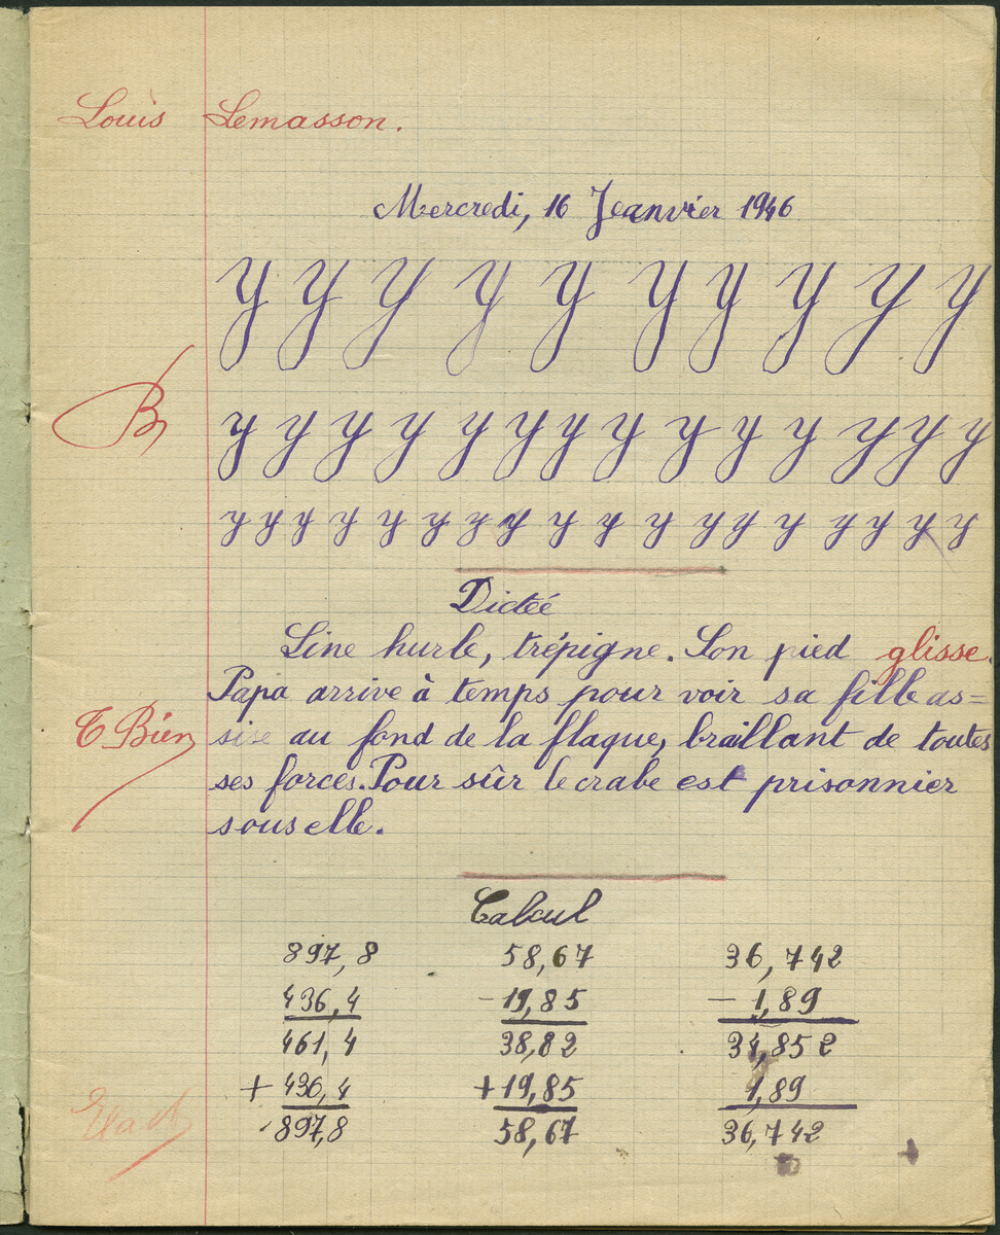 Louis Lemasson.
Mercredi, 16 Jeanvier 1946
y y y y y y y y y y
B
y y y y y y y y y y y y y y
y y y y y y y y y y y y y y y y y y
Dicteé
Line hurle, trépigne. Son pied glisse.
Papa arrive à temps pour voir sa fille as=
T Bien
sise au fond de la flaque, braillant de toutes
ses forces. Pour sûr le crabe est prisonnier
sous elle.
Calcul
897,8 58,67 36,742
436,4 - 19,85 - 1,89
461,4 38,82 34,852
+ 436,4 + 19,85 1,89
897,8 58,67 36,742
Exact